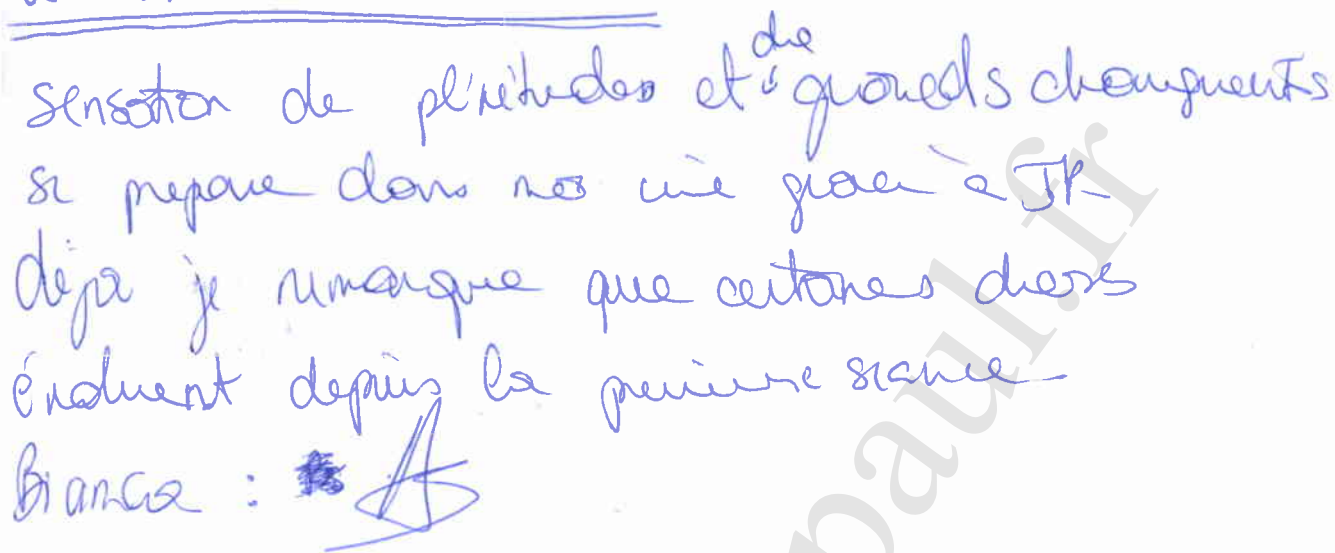 sensation de plénitudes et de grands changments
se prepare dans ma vie grace à JP
déja je remarque que certaines choses
évoluent depuis la premiere seance
Bianca :
paul.fr